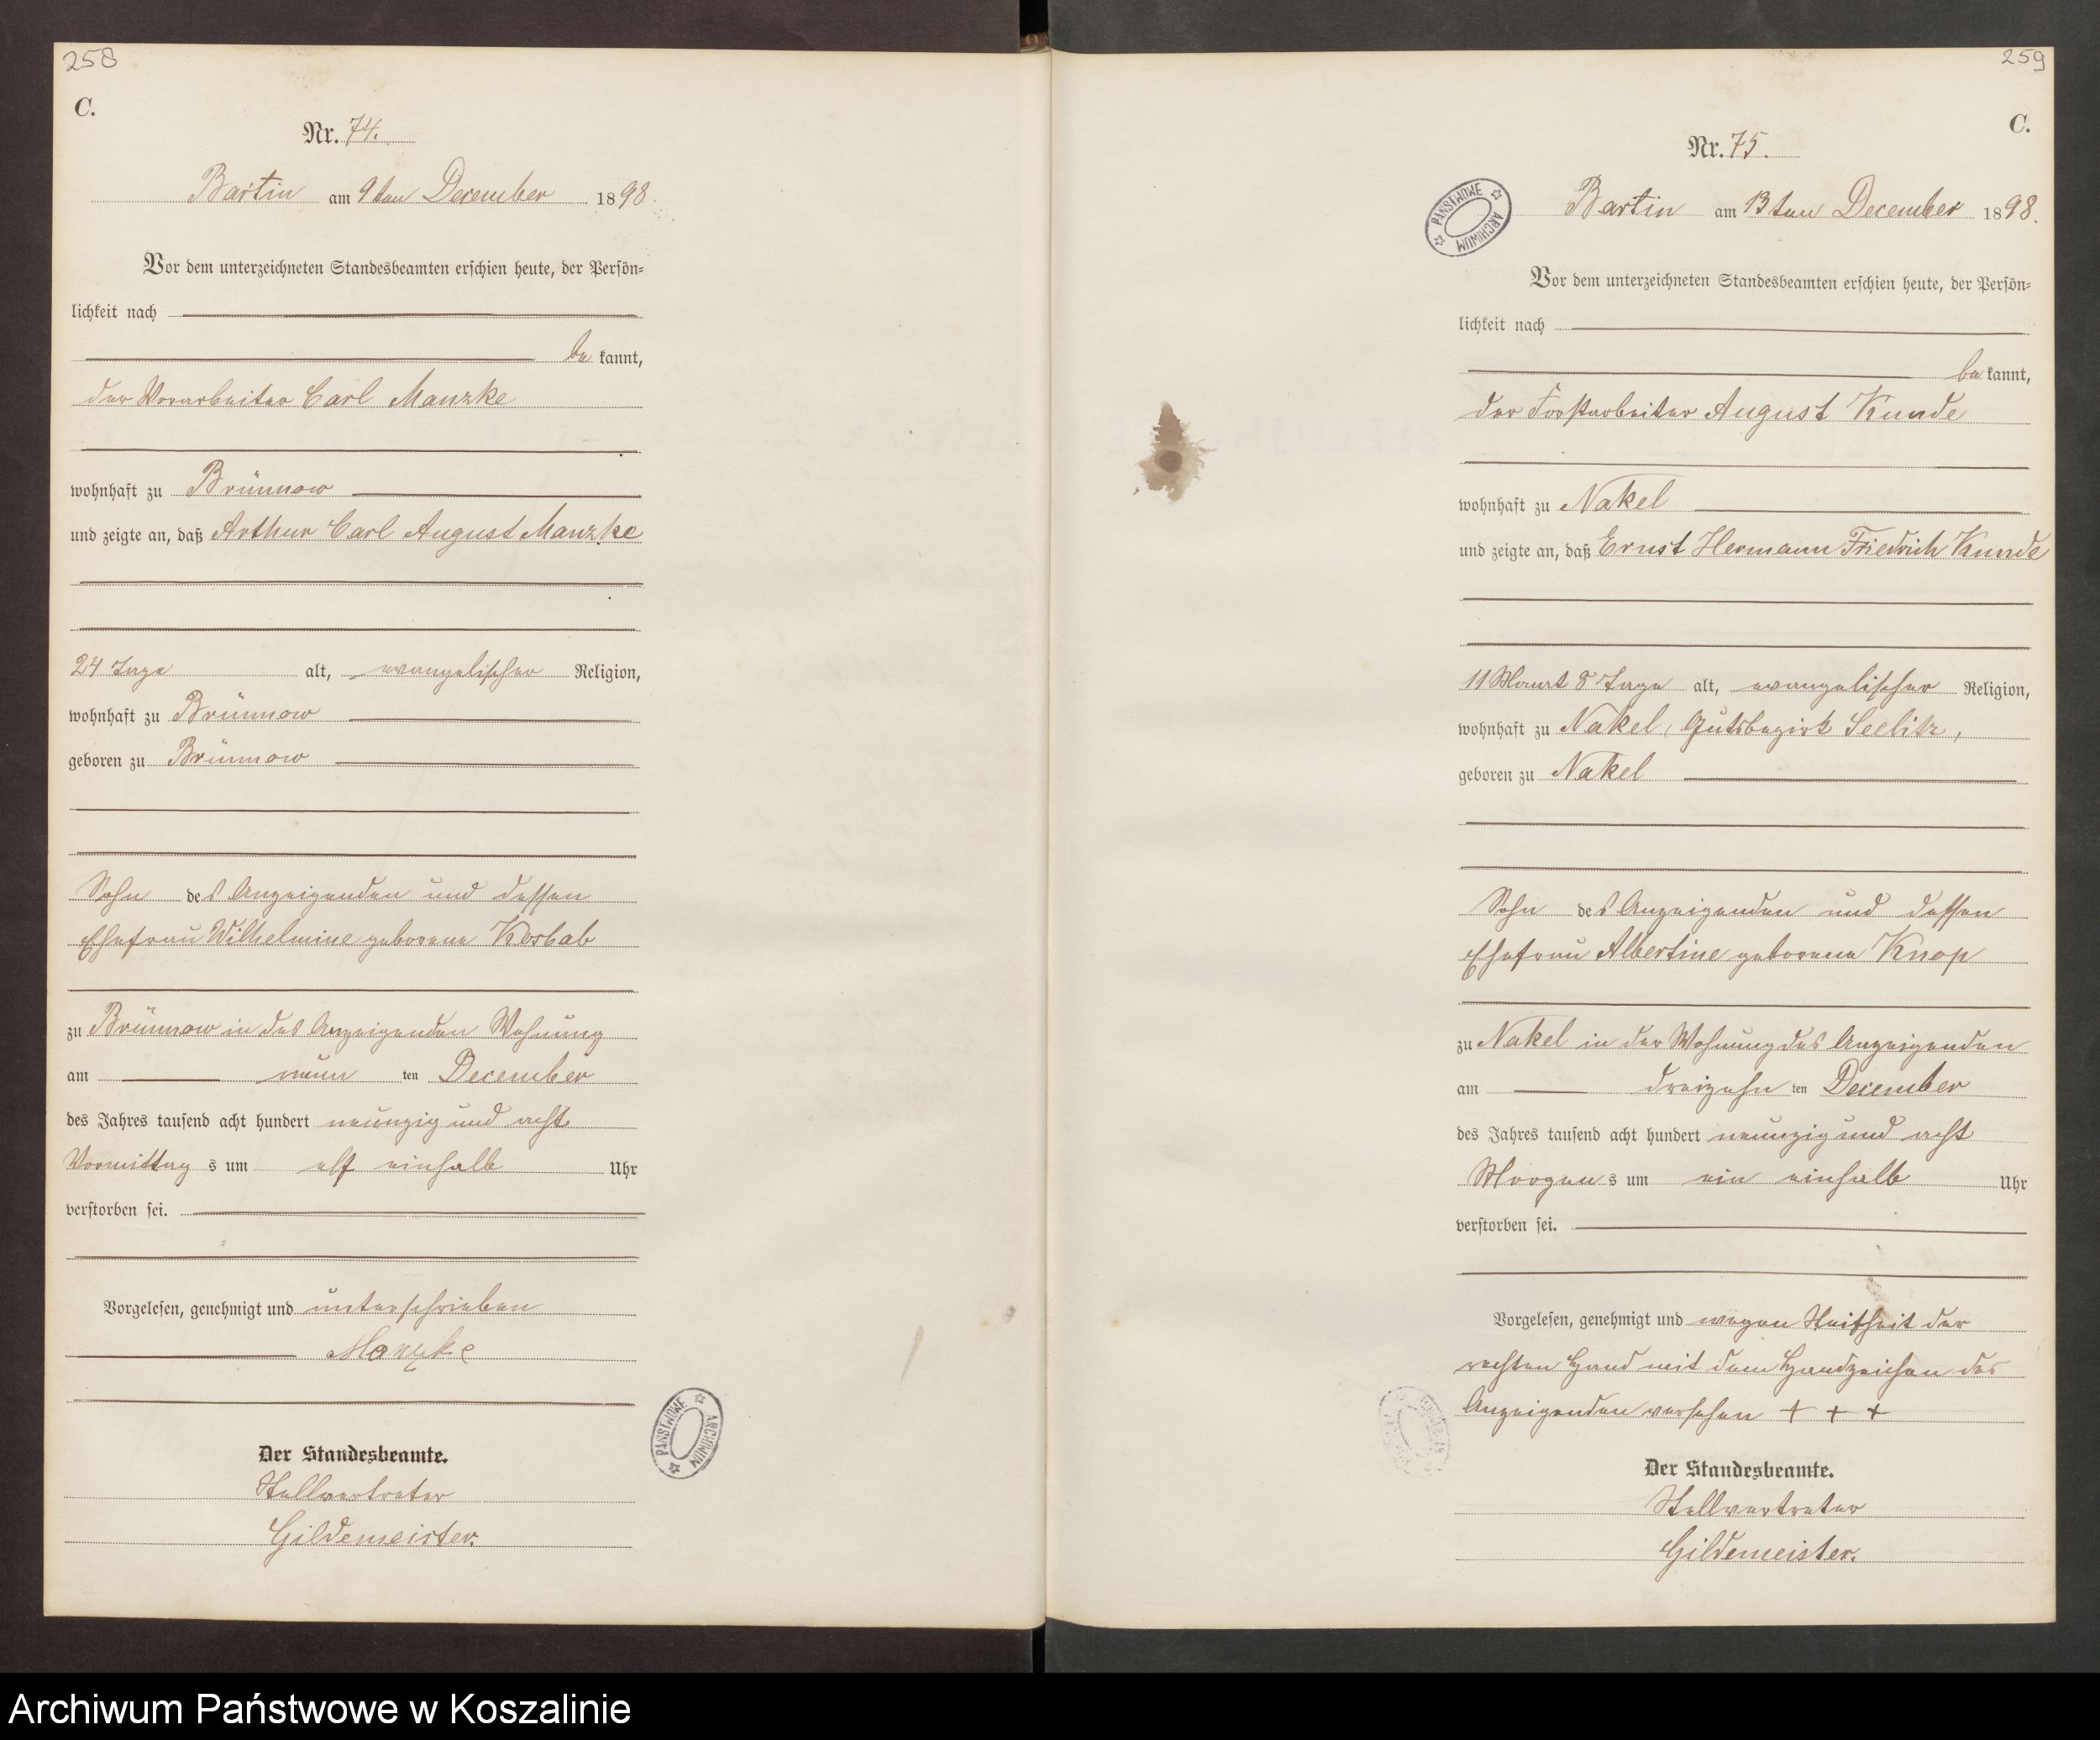 258
C.
Nr. 74.
Bartin am 9ten December 1898
Vor dem unterzeichneten Standesbeamten erschien heute, der Persön-
lichkeit nach
be kannt,
der Vorarbeiter Carl Manzke
wohnhaft zu Brünnow
und zeigte an, daß Arthur Carl August Manzke
24 Tage alt, evangelischer Religion,
wohnhaft zu Brünnow
geboren zu Brünnow
Sohn des Anzeigenden und dessen
Ehefrau Wilhelmine geborene Kosbab
zu Brünnow in des Anzeigenden Wohnung
am neun ten December
des Jahres tausend acht hundert neunzig und acht
Vormittag s um elf einhalb Uhr
verstorben sei.
Vorgelesen, genehmigt und unterschrieben
Manzke
Der Standesbeamte.
Stellvertreter
Gildemeister.
PAŃSTWOWE ARCHIWUM
259
C.
Nr. 75.
PAŃSTWOWE ARCHIWUM
Bartin am 13ten December 1898.
Vor dem unterzeichneten Standesbeamten erschien heute, der Persön-
lichkeit nach
be kannt,
der Forstarbeiter August Kunde
wohnhaft zu Nakel
und zeigte an, daß Ernst Hermann Friedrich Kunde
11 Monat 8 Tage alt, evangelischer Religion,
wohnhaft zu Nakel, Gutsbezirk Seelitz,
geboren zu Nakel
Sohn des Anzeigenden und dessen
Ehefrau Albertine geborene Knop
zu Nakel in der Wohnung des Anzeigenden
am dreizehn ten December
des Jahres tausend acht hundert neunzig und acht
Morgens um ein einhalb Uhr
verstorben sei.
Vorgelesen, genehmigt und wegen Steifheit der
rechten Hand mit dem Handzeichen des
Anzeigenden versehen + + +
Der Standesbeamte.
Stellvertreter
Gildemeister.
Archiwum Państwowe w Koszalinie